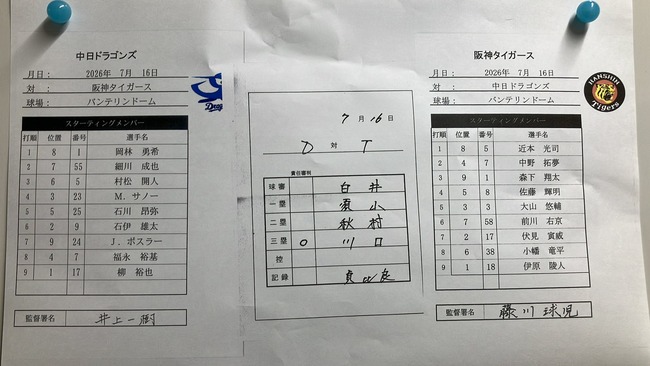 中日ドラゴンズ
月日： 2026年 7月 16日
対： 阪神タイガース
球場： バンテリンドーム
Drag
スターティングメンバー
打順 位置 番号 選手名
1 8 1 岡林 勇希
2 7 55 細川 成也
3 6 5 村松 開人
4 3 23 M．サノー
5 5 25 石川 昂弥
6 2 9 石伊 雄太
7 9 24 J．ボスラー
8 4 7 福永 裕基
9 1 17 柳 裕也
監督署名 井上一樹
7月16日
D 対 T
責任審判
球審 白井
一塁 須小
二塁 秋村
三塁 ○ 川口
控
記録
阪神タイガース
月日： 2026年 7月 16日
対： 中日ドラゴンズ
球場： バンテリンドーム
HANSHIN Tigers
スターティングメンバー
打順 位置 番号 選手名
1 8 5 近本 光司
2 4 7 中野 拓夢
3 9 1 森下 翔太
4 5 8 佐藤 輝明
5 3 3 大山 悠輔
6 7 58 前川 右京
7 2 17 伏見 寅威
8 6 38 小幡 竜平
9 1 18 伊原 陵人
監督署名 藤川球児